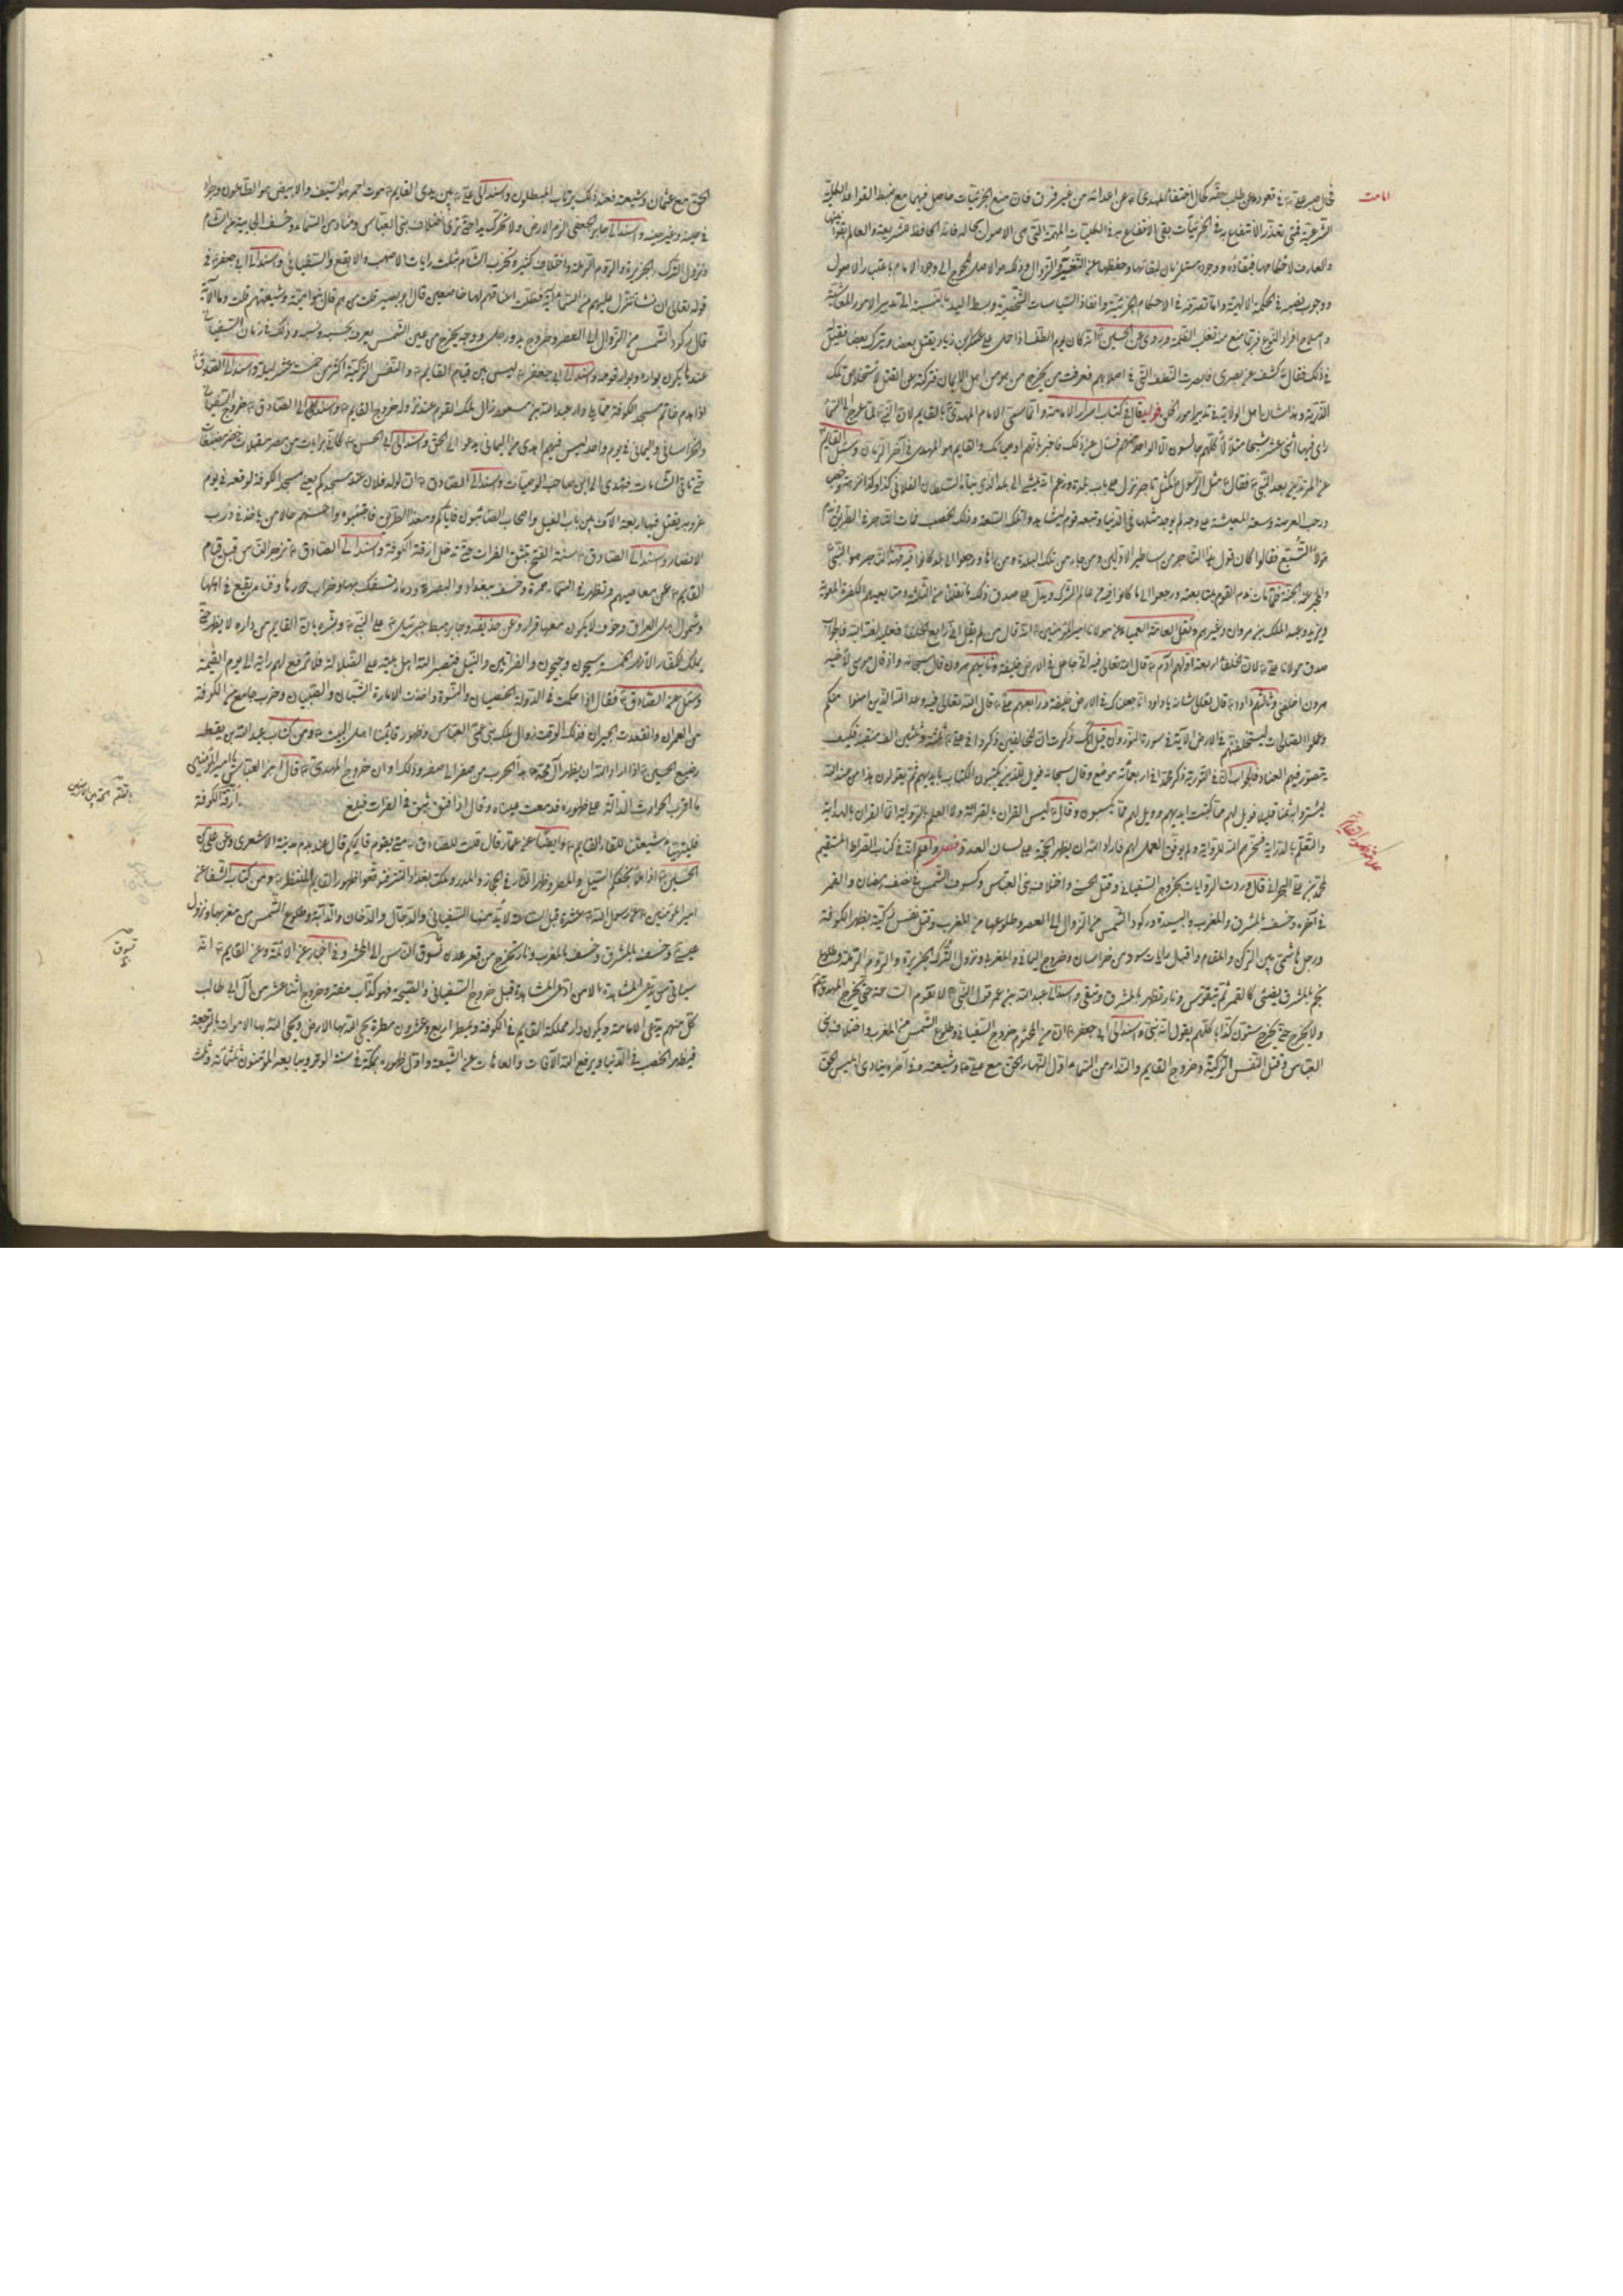 امامت
في حال صبر علي في قعوده عن طلب حقه كحال اختفاء المهدي عن اعدائه من غير فرق فان منع الجزئيات حاصل فيهما مع ضبط القواعد الكلية
الشرعية فمتى تعذر الانتفاع به في الجزئيات بقي الانتفاع به في الكليات المهمة التي هي الاصول بحاله فانه الحافظ للشريعة والعالم
والعارف لاحكامها فبقاؤه ووجوده مستلزمان لبقائها وحفظها عن التغيير والزوال وذلك هو الاصل المحوج الى وجود الامام باعتبار الاصول
ووجوب نصبه في الحكمة الالهية واما تصرفه في الاحكام الجزئية وانفاذ السياسات الشخصية وبسط اليد بالنسبة الى تدبير الامور المعاشية
وصلاح افراد النوع فربما منع منه تغلب الظلمة وروي عن الحسين انه كان يوم الطف اذا حمل على عسكر ابن زياد يقتل بعضا ويترك بعضا فقيل له
في ذلك فقال كشف عن بصري فابصرت النطف التي في اصلابهم فعرفت من يخرج من هو من اهل الايمان فتركته عن القتل لاستخلاص تلك
الذرية وهذا شان اهل الولاية في تدبير امور الخلق قال في كتاب اسرار الامامة وانما سمي الامام المهدي بالقايم لان النبي لما عرج الى السماء
راى فيها اثني عشر شبحا مثلا لا كلهم جالسون الا الواحد منهم فسئل عن ذلك فاخبر بانهم اوصيائك والقايم هو المهدي في آخر الزمان وسئل القايم
عن المرتدين بعد النبي فقال مثل الرسول كمثل تاجر نزل على باب بلدة وزعم انه يمشي الى بلد الذي بناه السلطان الفلاني كذا وكذا
ورحب العرصة وسعة المعيشة على وجه لم يوجد مثلها في الدنيا وتبعه قوم ليشاهدوا تلك السعة وذلك الخصب فمات التاجر في الطريق
فقالوا كان قول هذا التاجر من اساطير الاولين ومن جاء من تلك البلدة ومن رآها ورجعوا الى بلد كانوا فيه فهذا التاجر هو النبي
والبلدة الجنة فلما مات ندم القوم بمتابعته ورجعوا الى ما كانوا فيه من عالم الشرك ويدل على صدق ذلك
ويزيد وعبد الملك بن مروان وغيرهم ونقل العامة العمياء عن مولانا امير المؤمنين انه قال من لم يقل اني رابع الخلفاء فعليه لعنة الله فاجواب
صدق مولانا علي لان خلفاء اربعة اولهم آدم قال الله تعالى فيه اني جاعل في الارض خليفة وثانيهم هرون قال سبحانه واذ قال موسى لاخيه
هرون اخلفني وثالثهم داود قال تعالى شانه يا داود انا جعلناك في الارض خليفة ورابعهم علي قال الله تعالى فيه وعد الله الذين امنوا منكم
وعملوا الصالحات ليستخلفنهم في الارض الآية في سورة النور وان قيل انك ذكرت ان المخالفين ذكروا في علي ثلثة وثلثين الف منقبة فكيف
يتصور فيهم العناد فاجواب ان في التورية ذكر محمد في اربعمائة موضع وقال سبحانه فويل للذين يكتبون الكتاب بايديهم ثم يقولون هذا من عند الله
ليشتروا به ثمنا قليلا فويل لهم مما كتبت ايديهم وويل لهم مما يكسبون وقال ليس القران بالقرائة ولا العلم بالرواية انما القران بالهداية
والتعلم بالدراية فحرمهم الله للرواية ولم يوفق العمل لهم فاراد الله ان يظهر الحجة على لسان العدو فصل واعلم انه في كتاب الصراط المستقيم
محمد بن علي البحراني قال وردت الروايات بخروج السفياني وقتل الحسني واختلاف بني العباس وكسوف الشمس في نصف رمضان والقمر
في آخره وخسف بالمشرق والمغرب والبيداء وركود الشمس من الزوال الى العصر وطلوعها من المغرب وقتل نفس زكية بظهر الكوفة
ورجل هاشمي بين الركن والمقام واقبال رايات سود من خراسان وخروج اليماني والمغربي ونزول الترك الجزيرة والروم الرملة وطلوع
نجم بالمشرق يضئ كالقمر ثم يتقوس ونار تظهر بالمشرق وتبقى واسند الى عبد الله بن عمر قول النبي لا تقوم الساعة حتى يخرج المهدي
ولا يخرج حتى يخرج ستون كذابا كلهم يقول انه نبي واسند الى ابي جعفر ان من المحتوم خروج السفياني وطلوع الشمس من المغرب واختلاف بني
العباس وقتل النفس الزكية وخروج القايم والنداء من السماء اول النهار الحق مع علي وشيعته وفي آخره ينادي ابليس الحق
الحق مع عثمان وشيعته فعند ذلك يرتاب المبطلون واسند الى علي بين يدي القايم موت احمر هو السيف والابيض هو الطاعون وجراد
في حينه وغير حينه واسند الى جابر الجعفي الزم الارض ولا تحرك يدا حتى ترى اختلاف بني العباس ومنادي السماء وخسف الجابية من الشام
ونزول الترك الجزيرة والروم الرملة واختلاف كثير وتخرب الشام بثلث رايات الاصهب والابقع والسفياني واسند الى ابي جعفر في
قوله تعالى ان نشأ ننزل عليهم من السماء آية فظلت اعناقهم لها خاضعين قال ابو بصير قلت من هم قال بنو امية وشيعتهم قلت وما الآية
قال ركود الشمس من الزوال الى العصر وخروج صدر رجل ووجه يخرج من عين الشمس يعرف بحسبه ونسبه وذلك في زمان السفياني
عندها يكون بواره وبوار قومه واسند الى ابي جعفر ليس بين قيام القايم والنفس الزكية اكثر من خمسة عشر ليلة واسند الى الصادق
اذا هدم حائط مسجد الكوفة مما يلي دار عبد الله بن مسعود زال ملك القوم عند زواله خروج القايم واسند الى الصادق خروج السفياني
والخراساني واليماني في يوم واحد ليس فيهم اهدى من اليماني يدعو الى الحق واسند الى ابي الحسن كاني برايات من مصر مقبلات خضر مصبغات
حتى تاتي الشامات فتهدى الى ابن صاحب الوصيات واسند الى الصادق ان لولد فلان عند مسجدكم يعني مسجد الكوفة لوقعة في يوم
عروبة يقتل فيها اربعة الآف من باب الفيل واصحاب الصابون فاياكم وهذا الطريق فاجتنبوه واحسنهم حالا من ياخذ في درب
الانصار واسند الى الصادق سنة الفتح ينبثق الفرات حتى تدخل ازقة الكوفة واسند الى الصادق تزجر الناس قبل قيام
القايم عن معاصيهم وتظهر في السماء حمرة وخسف ببغداد والبصرة ودماء تسفك بها وخراب دورها وفناء يقع في اهلها
وشمول اهل العراق وخوف لا يكون معها قرار وعن حذيفة وجابر هبط جبرئيل على النبي وبشره بان القايم من ولده لا يظهر حتى
يملك الكفار الانهر الخمسة سيحون وجيحون والفراتين والنيل فينصر الله اهل بيته على الضلالة فلا ترفع لهم راية الى يوم القيمة
وسئل عن الصادق فقال اذا حكمت في الدولة الخصيان والنسوة واخذت الامارة الشبان والصبيان وخرب جامع الكوفة
من العمران وانعقدت الجيران فذلك الوقت زوال ملك بني عمي العباس وظهور قائمنا اهل البيت ومن كتاب عبد الله بن يقطر
رضيع الحسين اذا اراد الله ان يظهر آل محمد بدأ الحرب من صفر الى صفر وذلك اوان خروج المهدي قال ابن العباس يا امير المؤمنين
ما اقرب الحوادث الدالة على ظهوره فدمعت عيناه وقال اذا فتق بثق في الفرات فبلغ ازقة الكوفة
فليتهيأ شيعتنا للقاء القايم وايضا عن عمار قال قلت للصادق متى يقوم قايمكم قال عند هدم مدينة الاشعري وعن علي بن
الحسين اذا ملأ نجفكم السيل والمطر وظهر النار في الحجاز والمدر وملكت بغداد التتر فتوقعوا ظهور القايم المنتظر ومن كتاب الشفا عن
امير المؤمنين عن رسول الله عشرة قبل الساعة لا بد منها السفياني والدجال والدخان والدابة وطلوع الشمس من مغربها ونزول
عيسى وخسف بالمشرق وخسف بالمغرب ونار تخرج من قعر عدن تسوق الناس الى المحشر وفي اخبار عن الائمة وعن القايم انه
سياتي من يدعي المشاهدة الا من ادعى المشاهدة قبل خروج السفياني والصيحة فهو كذاب مفتر وخروج اثنا عشر من آل ابي طالب
كل منهم يدعي الامامة ويكون دار مملكة القايم في الكوفة ويمطر اربع وعشرون مطرة يحيى الله بها الارض ويحيى الله بها الاموات بالرجعة
فيظهر الخصب في الدنيا ويرفع الله الآفات والعاهات عن الشيعة واول ظهوره بمكة في سنة الوتر ويبايعه المؤمنون ثلثمائة وثلث
تسوق